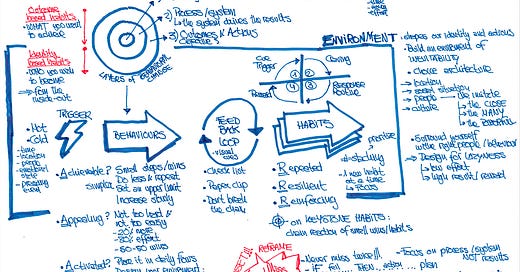 Outcome
based habits
• WHAT you want
to achieve
Identity
based habits
• WHO you wish
to become
→ from the
inside-out
LAYERS of BEHAVIOUR
CHANGE
2) Process/system
↳ the system drives the results
3) Outcomes & Actions
ENVIRONMENT
• shapes our identity and actions
• Build an environment of
INEVITABILITY
• choice architecture
• location
• social situation
• people
• culture
we imitate
↳ the CLOSE
↳ the MANY
↳ the POWERFUL
• Surround yourself
with the right people/behaviour
→ Design for LAZYNESS
↳ low effort
↳ high result/reward
Cue
Trigger
Craving
Reward
Response
Routine
1
2
3
4
TRIGGER
• Hot
• Cold
- time
- location
- people
- emotional
state
- preceding
event
BEHAVIOURS
FEED
BACK
LOOP
- visual
cues
HABITS
• Checklist
• Paper clip
• Don't break
the chain
• Repeated
• Resilient
• Reinforcing
• 1 new habit
at a time
↳ FOCUS
• on KEYSTONE HABITS:
chain reaction of small wins/habits
• Achievable?
simple
Small steps/wins
Do less & repeat
Set an upper limit
Increase slowly
• Appealing?
Not too hard &
not too easy
- 50-50 wins
• Activated?
Place it in daily flows
REFRAME
• Never miss twice!!!
• IF fail... Then... action... plan
- Focus on process/system
NOT results